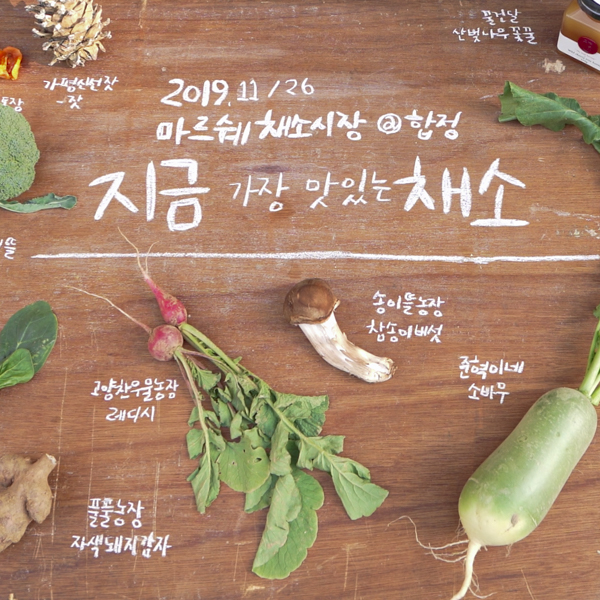 꿀건달
산벚나무꽃꿀
가평신선잣
-잣
농장
2019.11/26
마르쉐 채소시장 @ 합정
지금 가장 맛있는 채소
뜰
송이뜰농장
참송이버섯
준혁이네
소바무
고양찬우물농장
래디시
풀풀농장
자색돼지감자